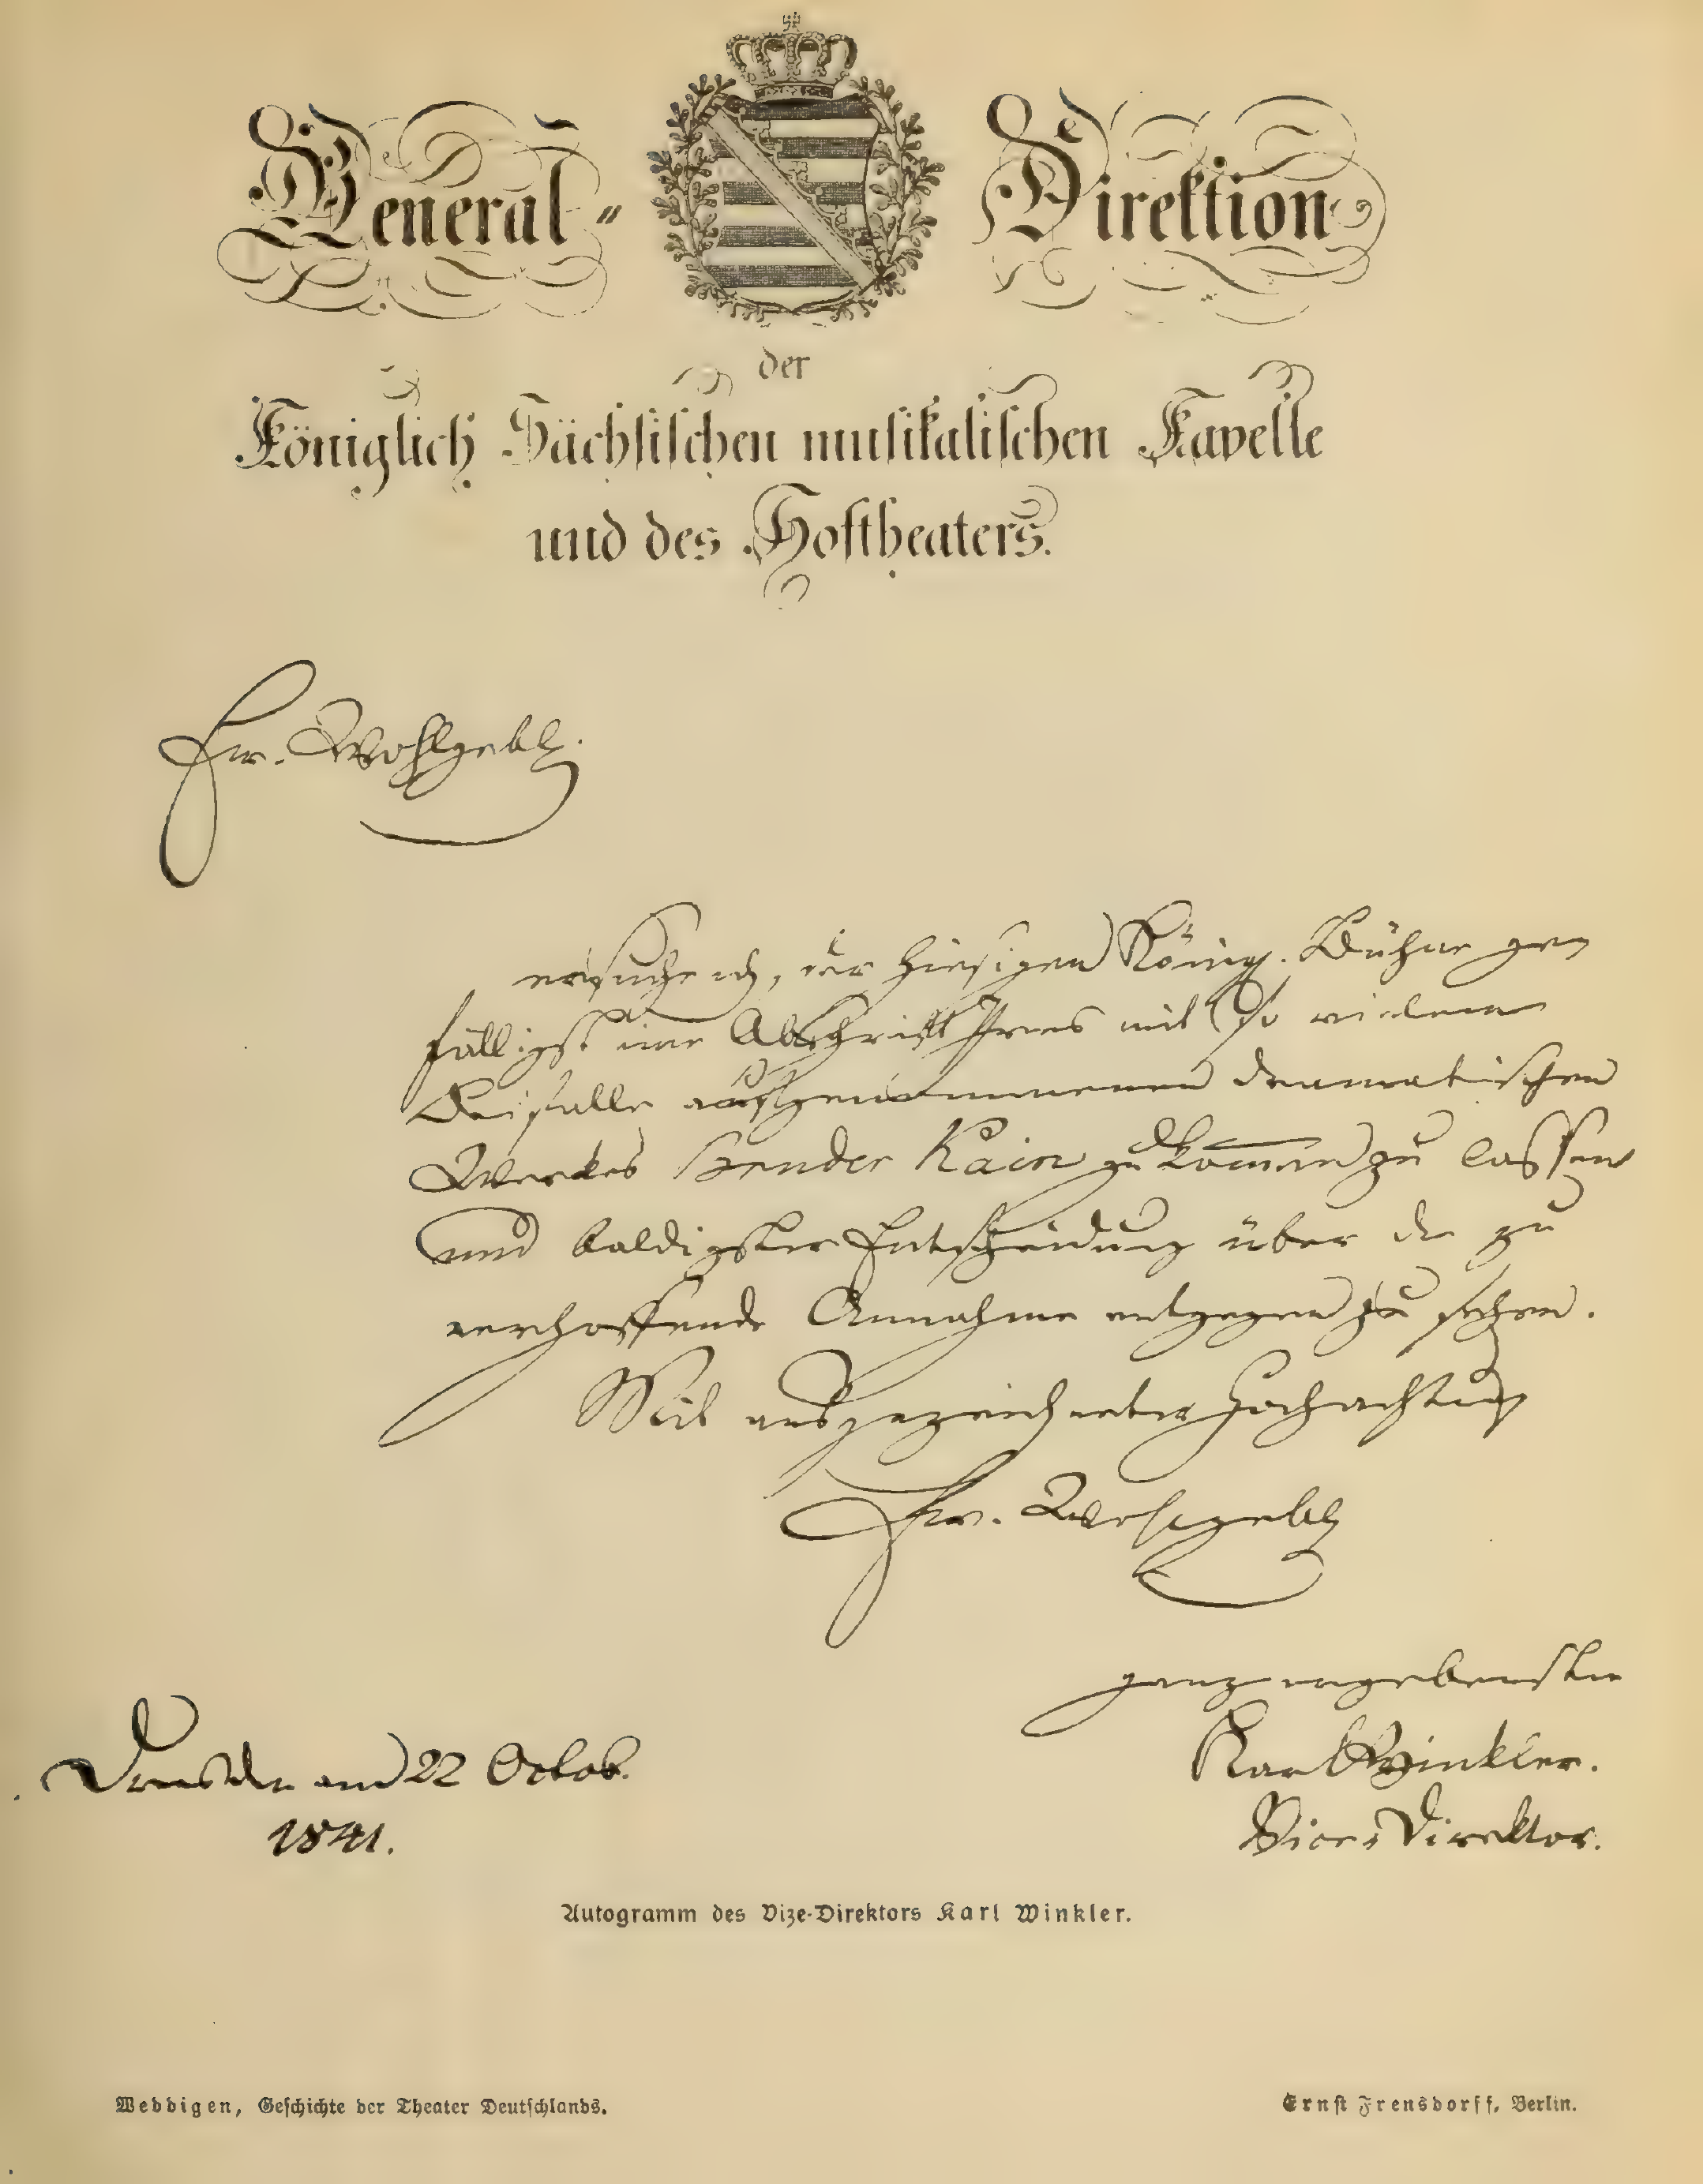 General- Direktion
der
Königlich Sächsischen musikalischen Kapelle
und des Hoftheaters.
Ew. Wohlgebh.
ersuche ich, der hiesigen Königl. Bühne ge-
fälligst eine Abschrift Ihres mit so vielem
Beifalle aufgenommenen dramatischen
Werkes Bender Kain zukommen zu lassen
und baldigster Entscheidung über die zu
verhoffende Annahme entgegen zu sehen.
Mit ausgezeichneter Hochachtung
Ew. Wohlgebh
ganz ergebenster
Karl Winkler.
Vice-Direktor.
Dresden am 22 Octob.
1841.
Autogramm des Vize-Direktors Karl Winkler.
Weddigen, Geschichte der Theater Deutschlands.
Ernst Frensdorff, Berlin.